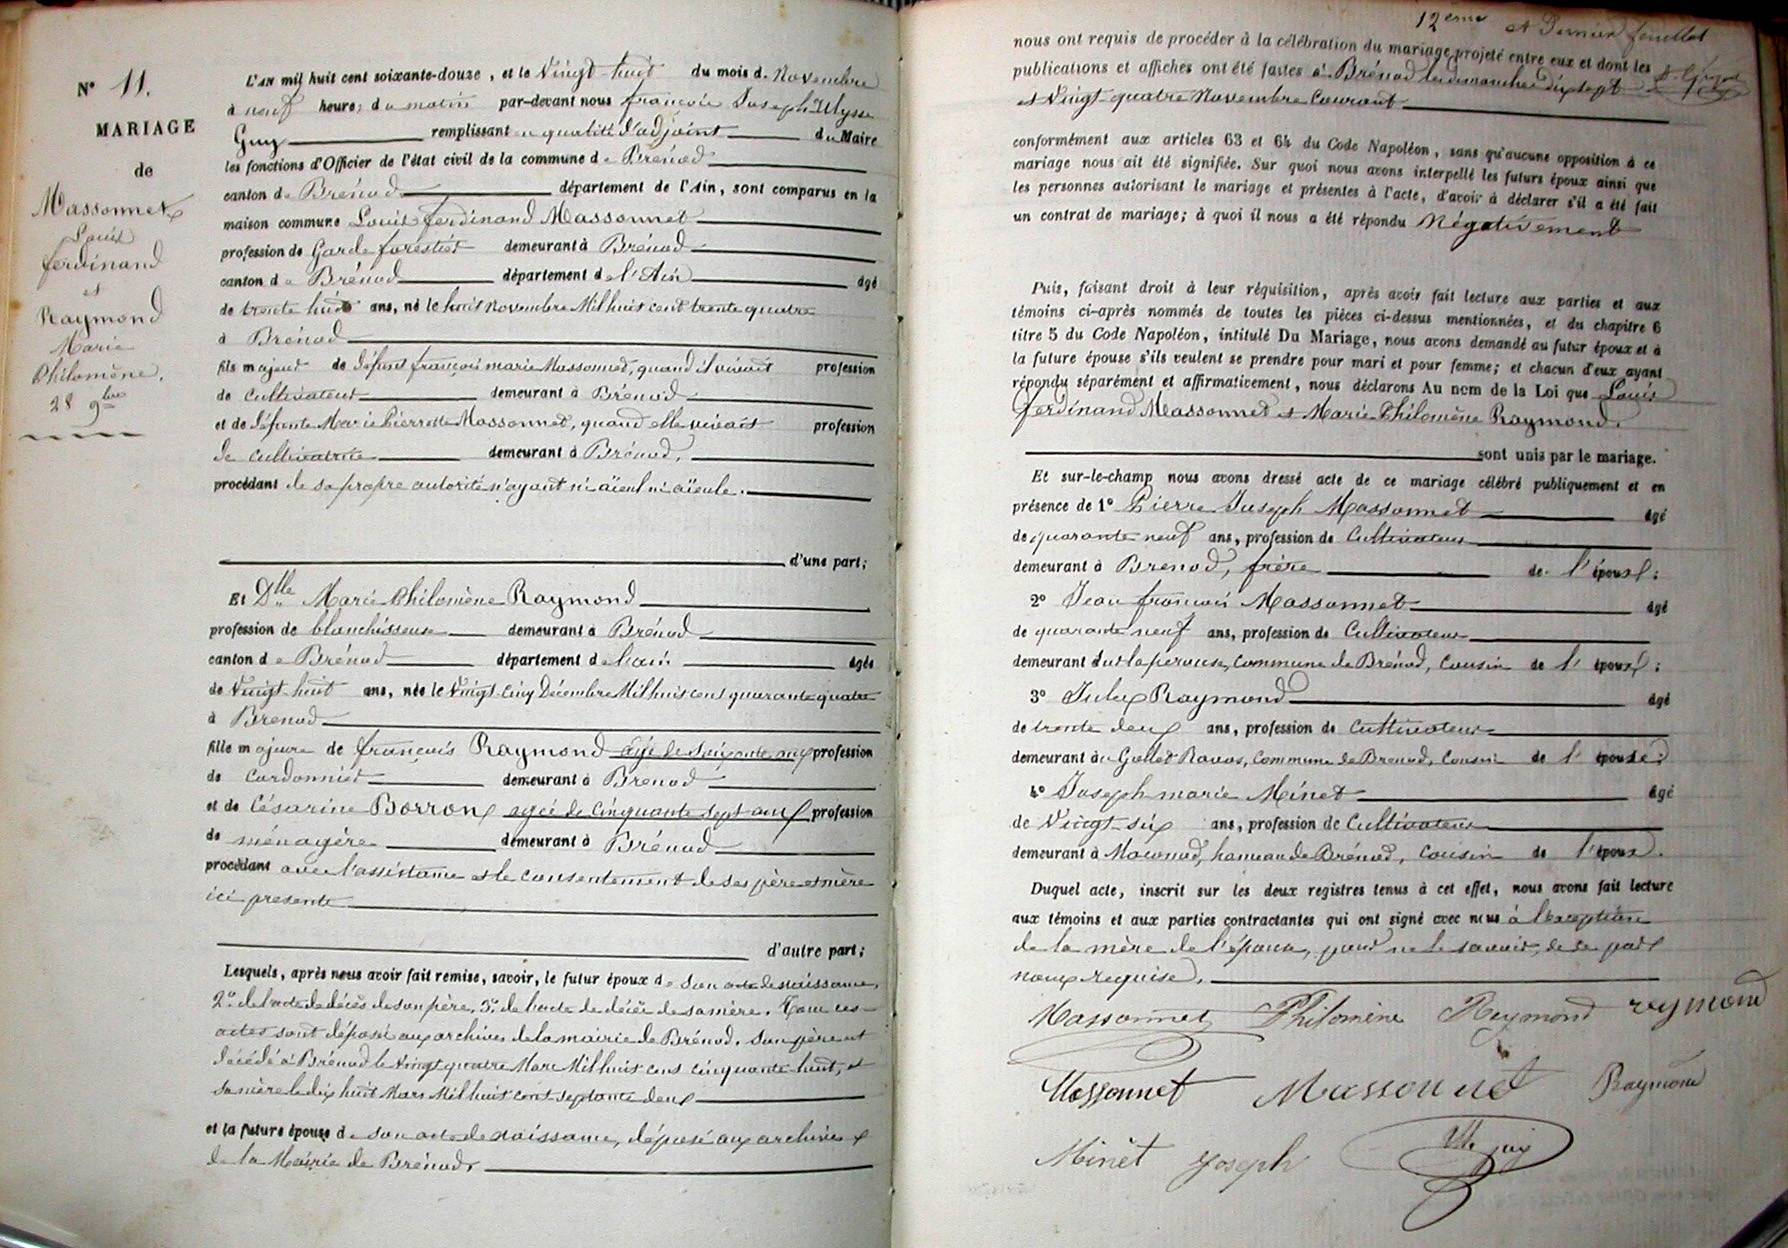 N° 11.
MARIAGE
de
Massonnet
Louis
ferdinand
et
Raymond
Marie
Philomène.
28 9bre
L'AN mil huit cent soixante-douze, et le Vingt-huit du mois de Novembre
à neuf heures du matin par-devant nous françois Joseph Ulysse
Guy remplissant en qualité d'adjoint du Maire
les fonctions d'Officier de l'état civil de la commune de Brénod
canton de Brénod département de l'Ain, sont comparus en la
maison commune Louis ferdinand Massonnet
profession de Garde forestier demeurant à Brénod
canton de Brénod département de l'Ain âgé
de trente huit ans, né le huit Novembre Mil huit cent trente quatre
à Brénod
fils majeur de défunt françois marie Massonnet, quand il vivait profession
de cultivateur demeurant à Brénod
et de défunte Marie Pierrette Massonnet, quand elle vivait profession
de cultivatrice demeurant à Brénod.
procédant de sa propre autorité n'ayant ni aïeul ni aïeule.
d'une part;
Et Dlle Marie Philomène Raymond
profession de blanchisseuse demeurant à Brénod
canton de Brénod département de l'ain âgée
de Vingt-huit ans, née le Vingt-cinq Décembre Mil huit cent quarante quatre
à Brenod
fille majeure de françois Raymond âgé de soixante ans profession
de cordonnier demeurant à Brenod
et de Césarine Borron agée de Cinquante sept ans profession
de ménagère demeurant à Brénod
procédant avec l'assistance et le consentement de ses père et mère
ici présents
d'autre part;
Lesquels, après nous avoir fait remise, savoir, le futur époux de son acte de naissance,
2° de l'acte de décès de son père, 3° de l'acte de décès de sa mère. Tous ces
actes sont déposés aux archives de la mairie de Brénod. Son père est
décédé à Brénod le Vingt quatre Mars Mil huit cent cinquante-huit, et
sa mère le dix huit Mars Mil huit cent septante deux
et la future épouse de son acte de naissance, déposé aux archives
de la Mairie de Brénod.
12ème et Dernier feuillet
nous ont requis de procéder à la célébration du mariage projeté entre eux et dont les
publications et affiches ont été faites à Brénod les dimanches dix sept
et Vingt-quatre Novembre Courant
conformément aux articles 63 et 64 du Code Napoléon, sans qu'aucune opposition à ce
mariage nous ait été signifiée. Sur quoi nous avons interpellé les futurs époux ainsi que
les personnes autorisant le mariage et présentes à l'acte, d'avoir à déclarer s'il a été fait
un contrat de mariage; à quoi il nous a été répondu Négativement
Puis, faisant droit à leur réquisition, après avoir fait lecture aux parties et aux
témoins ci-après nommés de toutes les pièces ci-dessus mentionnées, et du chapitre 6
titre 5 du Code Napoléon, intitulé Du Mariage, nous avons demandé au futur époux et à
la future épouse s'ils veulent se prendre pour mari et pour femme; et chacun d'eux ayant
répondu séparément et affirmativement, nous déclarons Au nom de la Loi que Louis
ferdinand Massonnet et Marie Philomène Raymond.
sont unis par le mariage.
Et sur-le-champ nous avons dressé acte de ce mariage célébré publiquement et en
présence de 1° Pierre Joseph Massonnet âgé
de quarante neuf ans, profession de Cultivateur
demeurant à Brenod, frère de l'époux;
2° Jean françois Massonnet âgé
de quarante neuf ans, profession de Cultivateur
demeurant commune de Brénod, Cousin de l'époux;
3° Jules Raymond âgé
de trente deux ans, profession de Cultivateur
demeurant au Commune de Brenod, Cousin de l'épouse;
4° Joseph marie Minet âgé
de Vingt-six ans, profession de Cultivateur
demeurant à Maconod, hameau de Brénod, cousin de l'époux.
Duquel acte, inscrit sur les deux registres tenus à cet effet, nous avons fait lecture
aux témoins et aux parties contractantes qui ont signé avec nous à l'exception
de la mère de l'épouse, pour ne le savoir, de ce par
nous requise.
Massonnet Philomène Raymond raymond
Massonnet Massonnet Raymond
Minet Joseph Guy